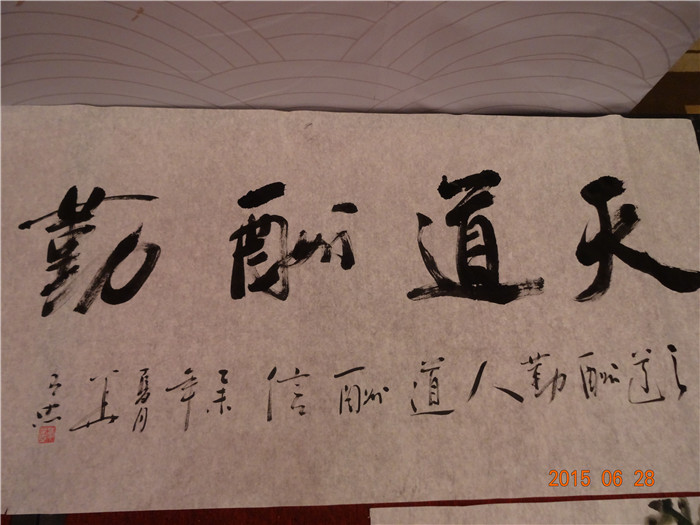 天道酬勤
道酬勤人道酬信乙未年夏月
2015 06 28